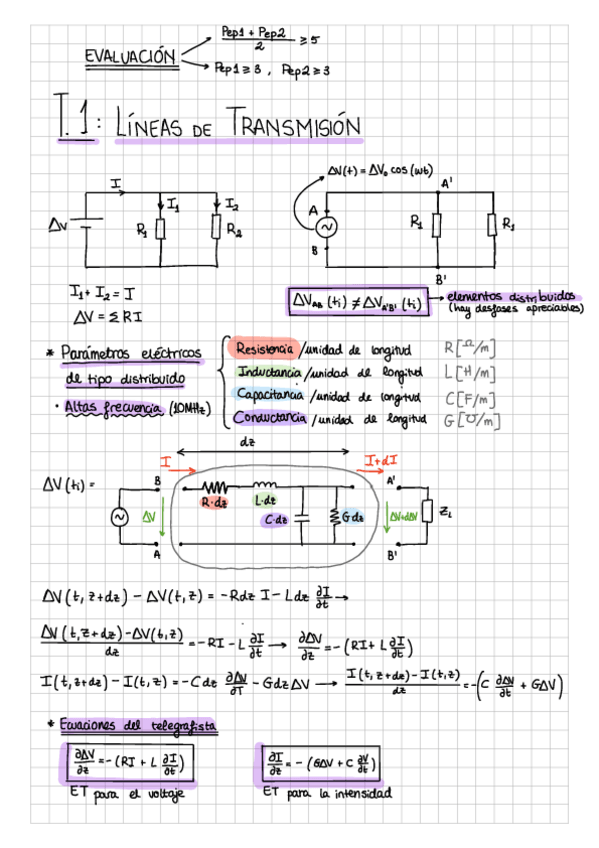 EVALUACIÓN
Pep1 + Pep2 / 2 ≥ 5
Pep1 ≥ 3 , Pep2 ≥ 3
T.1: LÍNEAS DE TRANSMISIÓN
I
I₁
I₂
ΔV
R₁
R₂
ΔV(t) = ΔV₀ cos(wt)
A
B
A'
B'
R₁
R₁
I₁ + I₂ = I
ΔV = Σ RI
ΔV_AB (ti) ≠ ΔV_A'B' (ti) → elementos distribuidos
(hay desfases apreciables)
* Parámetros eléctricos
de tipo distribuido
· Altas frecuencia (10MHz)
Resistencia /unidad de longitud R[Ω/m]
Inductancia /unidad de longitud L[H/m]
Capacitancia /unidad de longitud C[F/m]
Conductancia /unidad de longitud G[℧/m]
dz
I
I+dI
ΔV(ti) =
B
A
ΔV
R·dz
L·dz
C·dz
Gdz
A'
B'
ΔV+dΔV
Z_L
ΔV(t, z+dz) − ΔV(t, z) = −Rdz I − Ldz ∂I/∂t →
ΔV(t, z+dz) − ΔV(t, z) / dz = −RI − L ∂I/∂t → ∂ΔV/∂z = −(RI + L ∂I/∂t)
I(t, z+dz) − I(t, z) = −C dz ∂ΔV/∂T − Gdz ΔV → I(t, z+dz) − I(t, z) / dz = −(C ∂ΔV/∂t + GΔV)
* Ecuaciones del telegrafista
∂ΔV/∂z = −(RI + L ∂I/∂t)
∂I/∂z = −(GΔV + C ∂V/∂t)
ET para el voltaje
ET para la intensidad